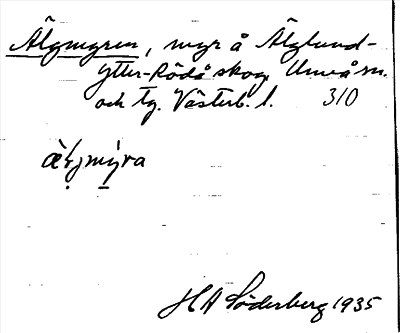 Älgmyren, myr å Älglund-
Ytter-Rödå skog, Umeå sn.
och tg. Västerb. l. 310
H A Söderberg 1935